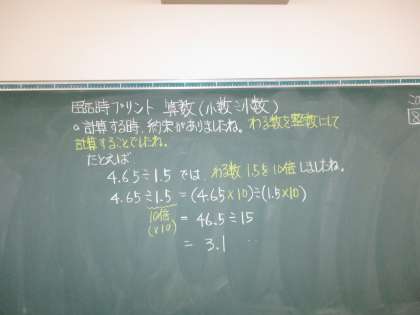 時プリント 算数(小数÷小数)
○計算する時、約束がありましたね。わる数を整数にして
計算することでしたね。
たとえば
4.65÷1.5 では、わる数1.5を10倍しましたね。
4.65÷1.5 = (4.65×10)÷(1.5×10)
10倍
(×10)
= 46.5÷15
= 3.1